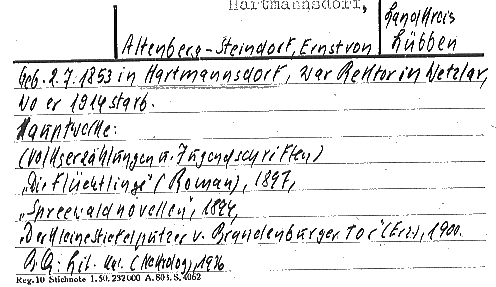 Hartmannsdorf,
Landkreis
Altenberg-Steindorf, Ernst von
Lübben
Geb. 2.7.1853 in Hartmannsdorf, war Rektor in Wetzlar,
wo er 1914 starb.
Hauptwerke:
(Volkserzählungen u. Jugendschriften)
"Die Flüchtlinge" (Roman), 1897,
"Spreewaldnovellen", 1894,
"Der kleine Stiefelputzer v. Brandenburger Tor" (Erz), 1900.
Lit. Kal. (Nekrolog), 1936
Reg. 10 Stichnote 1. 50. 232000 A. 803. S. 4062